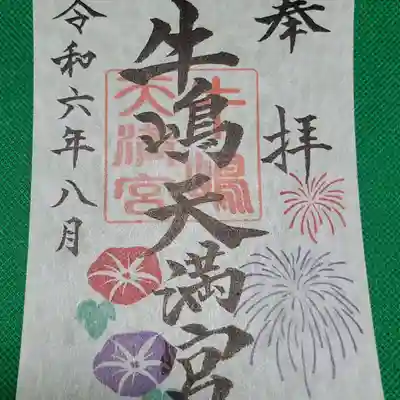 奉拝
牛嶋天満宮
牛嶋
天満宮
令和六年八月